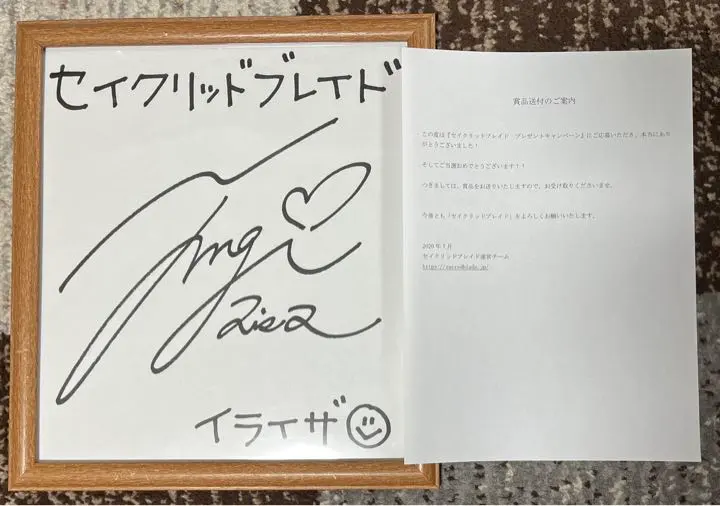 セイクリッドブレイド
イライザ
賞品送付のご案内
この度は『セイクリッドブレイド プレゼントキャンペーン』にご応募いただき、本当にあり
がとうございました！
そしてご当選おめでとうございます！！
つきましては、賞品をお送りいたしますので、お受け取りくださいませ。
今後とも「セイクリッドブレイド」をよろしくお願いいたします。
2020年1月
セイクリッドブレイド運営チーム